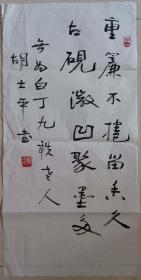 重簾不捲留香久
古硯微凹聚墨多
安如白丁九秩老人
胡士平書